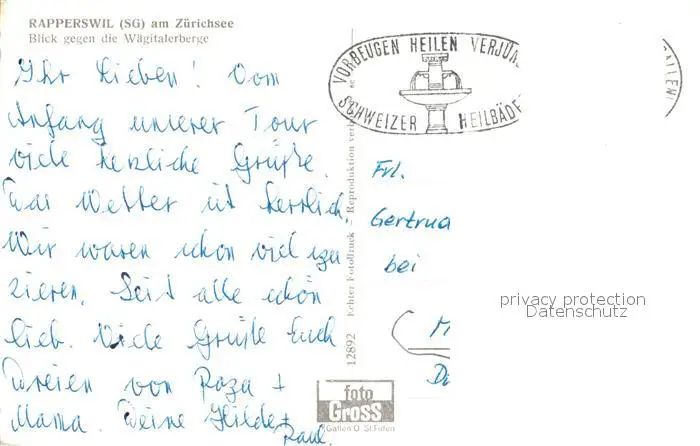 RAPPERSWIL (SG) am Zürichsee
Blick gegen die Wägitalerberge
Ihr Lieben! Vom
Anfang unserer Tour
viele herzliche Grüße.
Das Wetter ist herrlich.
Wir waren schon viel
zieren. Seid alle schön
lieb. Viele Grüße Euch
Dreien von Papa +
Mama. Deine Hilde +
Paul.
12892 Echter Fotodruck - Reproduktion
foto
GROSS
St. Fiden
VORBEUGEN HEILEN VERJÜN
SCHWEIZER HEILBÄDE
GALLEN
Frl.
Gertrud
bei
M
privacy protection
Datenschutz